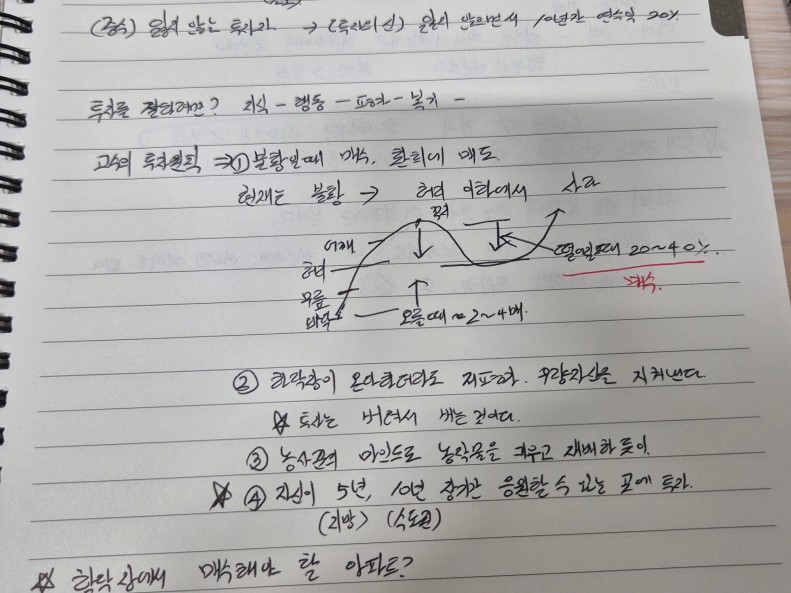 (공식) 잃지 않는 투자자 → (투자의신) 잃지 않으면서 10년간 연수익 20%.
투자를 잘하려면? 지식 - 행동 - 경험 - 복기 -
고수의 투자원칙 ⇒ ① 불황일때 매수, 활황에 매도.
현재는 불황 → 허리 이하에서 사라
꼭지
어깨
허리
무릎
바닥
떨어질때 20~40%.
매수.
오를때 ~ 2~4배.
② 하락장이 온다하더라도 저평가. 우량자산을 지켜낸다.
☆ 투자는 버텨서 버는 것이다.
③ 농사꾼의 마인드로 농작물을 키우고 재배하듯이.
☆ ④ 자신이 5년, 10년 장기간 응원할 수 있는 곳에 투자.
(지방) (수도권)
☆ 하락장에서 매수해야 할 아파트?